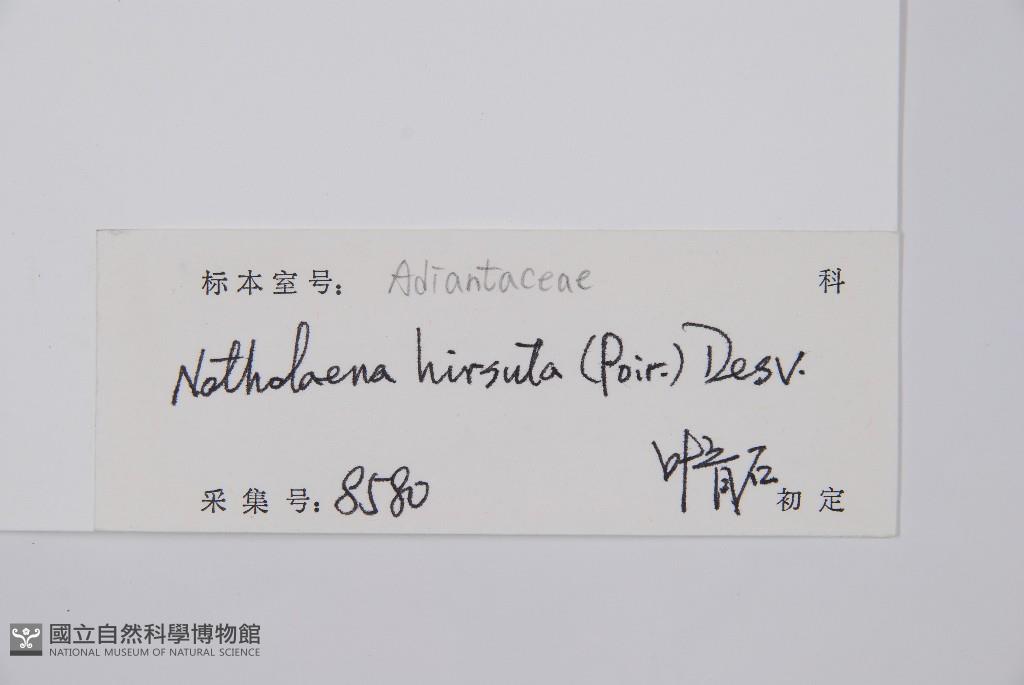 标本室号： Adiantaceae 科
Notholaena hirsuta (Poir.) Desv.
采集号：8580 叶育石 初定
國立自然科學博物館
NATIONAL MUSEUM OF NATURAL SCIENCE